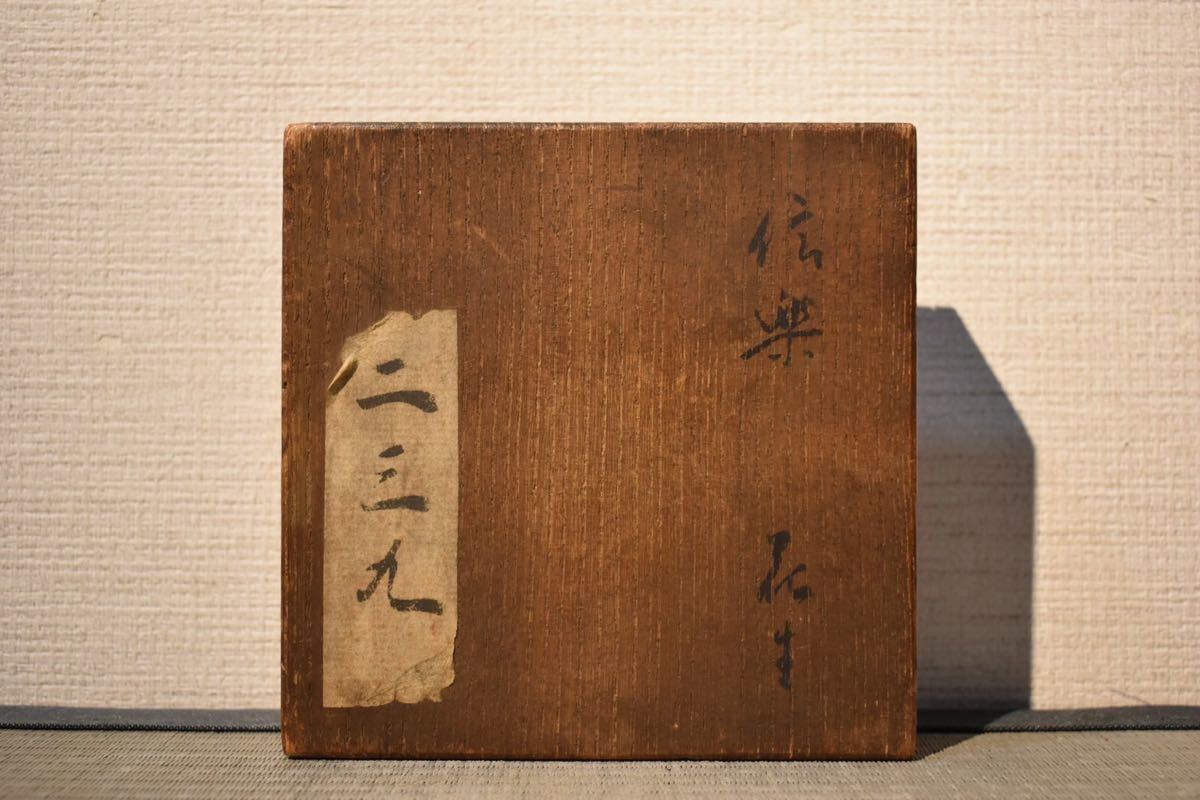 信楽 花生
二三九